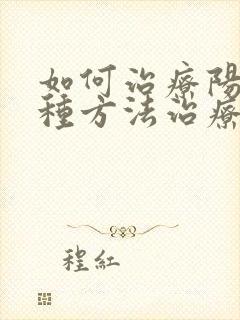 如何治療陽
種方法治療
程紅